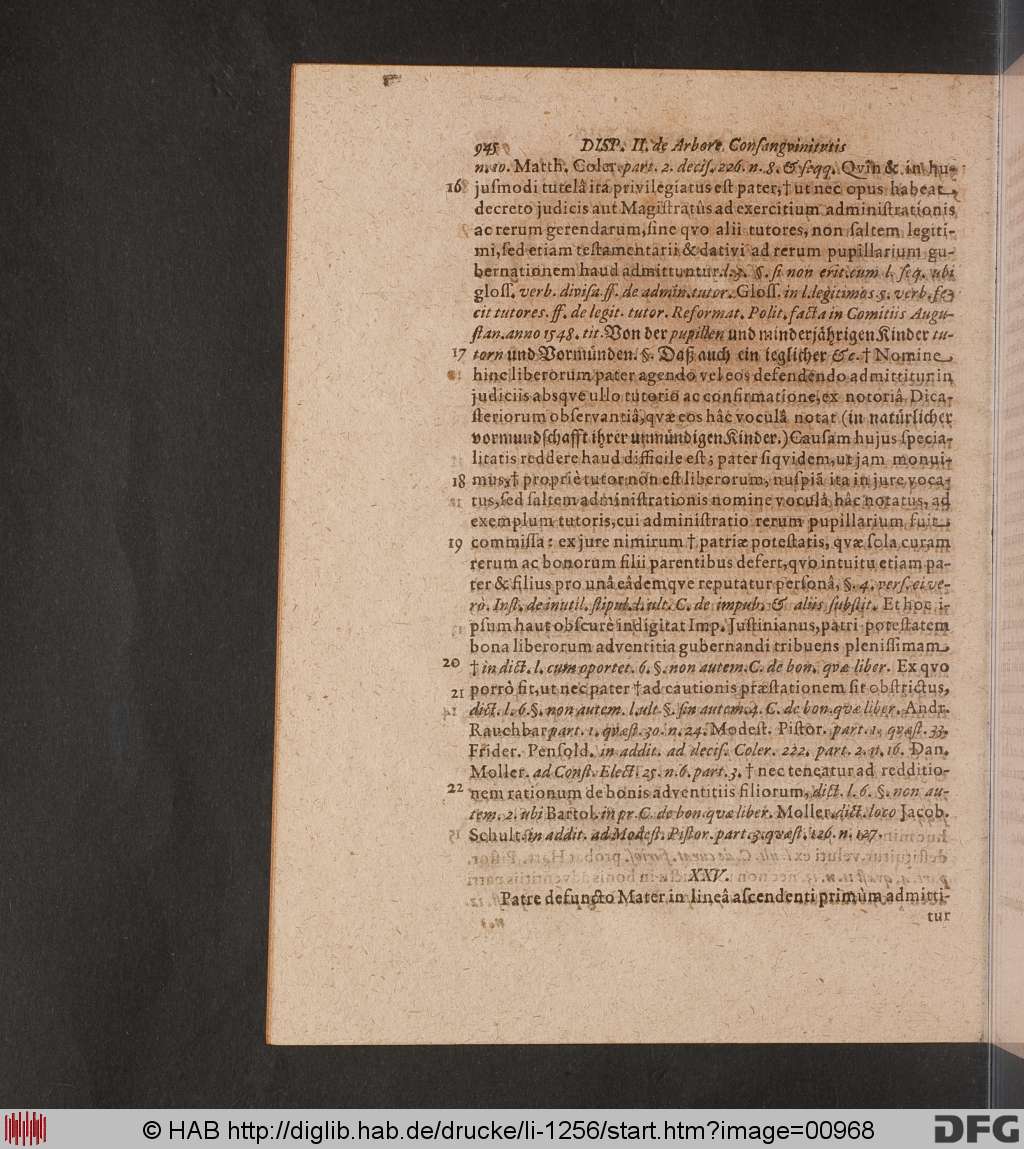 945 DISP. II. de Arbore Conſangvinitatis
n. 10. Matth. Coler. part. 2. deciſ. 226. n. 8. & ſeqq. Qvin & in hu-
16 juſmodi tutelâ ita privilegiatus eſt pater, † ut nec opus habeat
decreto judicis aut Magiſtratûs ad exercitium adminiſtrationis
ac rerum gerendarum, ſine qvo alii tutores, non ſaltem legiti-
mi, ſed etiam teſtamentarii & dativi ad rerum pupillarium gu-
bernationem haud admittuntur. l. 3. §. ſi non erit. cum l. ſeq. ubi
gloſſ. verb. diviſa ff. de admin. tutor. Gloſſ. in l. legitimos 5. verb. fe-
cit tutores. ff. de legit. tutor. Reformat. Polit. facta in Comitiis Augu-
ſtan. anno 1548. tit. Von der pupillen und minderjährigen Kinder tu-
17 torn und Vormünden. §. Daß auch ein ieglicher &c. † Nomine
hinc liberorum pater agendo vel eos defendendo admittitur in
judiciis absqve ullo tutorio ac confirmatione, ex notoriâ Dica-
ſteriorum obſervantiâ, qvæ eos hâc voculâ notat (in natürlicher
vormundſchafft ihrer unmündigen Kinder.) Cauſam hujus ſpecia-
litatis reddere haud difficile eſt; pater ſiqvidem, ut jam monui-
18 mus, † propriè tutor non eſt liberorum, nuſpiã ita in jure voca-
tus, ſed ſaltem adminiſtrationis nomine voculâ hâc notatus, ad
exemplum tutoris, cui adminiſtratio rerum pupillarium fuit
19 commiſſa: ex jure nimirum † patriæ poteſtatis, qvæ ſola curam
rerum ac bonorum filii parentibus defert, qvo intuitu etiam pa-
ter & filius pro unâ eâdemqve reputatur perſonâ, §. 4. verſ. ei ve-
rò. Inſt. de inutil. ſtipul. l. ult. C. de impub. & aliis ſubſtit. Et hoc i-
pſum haut obſcurè indigitat Imp. Juſtinianus, patri poteſtatem
bona liberorum adventitia gubernandi tribuens pleniſſimam
20 † in dict. l. cum oportet. 6. §. non autem. C. de bon. qvæ liber. Ex qvo
21 porrò fit, ut nec pater † ad cautionis præſtationem ſit obſtrictus,
dict. l. 6. §. non autem. l. ult §. ſin autem. 4. C. de bon. qvæ liber. Andr.
Rauchbar part. 1. qvæſt. 30. n. 24. Modeſt. Piſtor. part. 1. qvæſt. 33.
Frider. Penſold. in addit. ad deciſ. Coler. 222. part. 2. n. 16. Dan.
Moller. ad Conſt. Elect. 25. n. 6. part. 3. † nec teneatur ad redditio-
22 nem rationum de bonis adventitiis filiorum, dict. l. 6. §. non au-
tem. 2. ubi Bartol. in pr. C. de bon. qvæ liber. Moller. dict. loco Jacob.
Schults in addit. ad Modeſt. Piſtor. part. 3. qvæſt. 126. n. 127.
XXV.
Patre defuncto Mater in lineâ aſcendenti primùm admitti-
tur
© HAB http://diglib.hab.de/drucke/li-1256/start.htm?image=00968
DFG